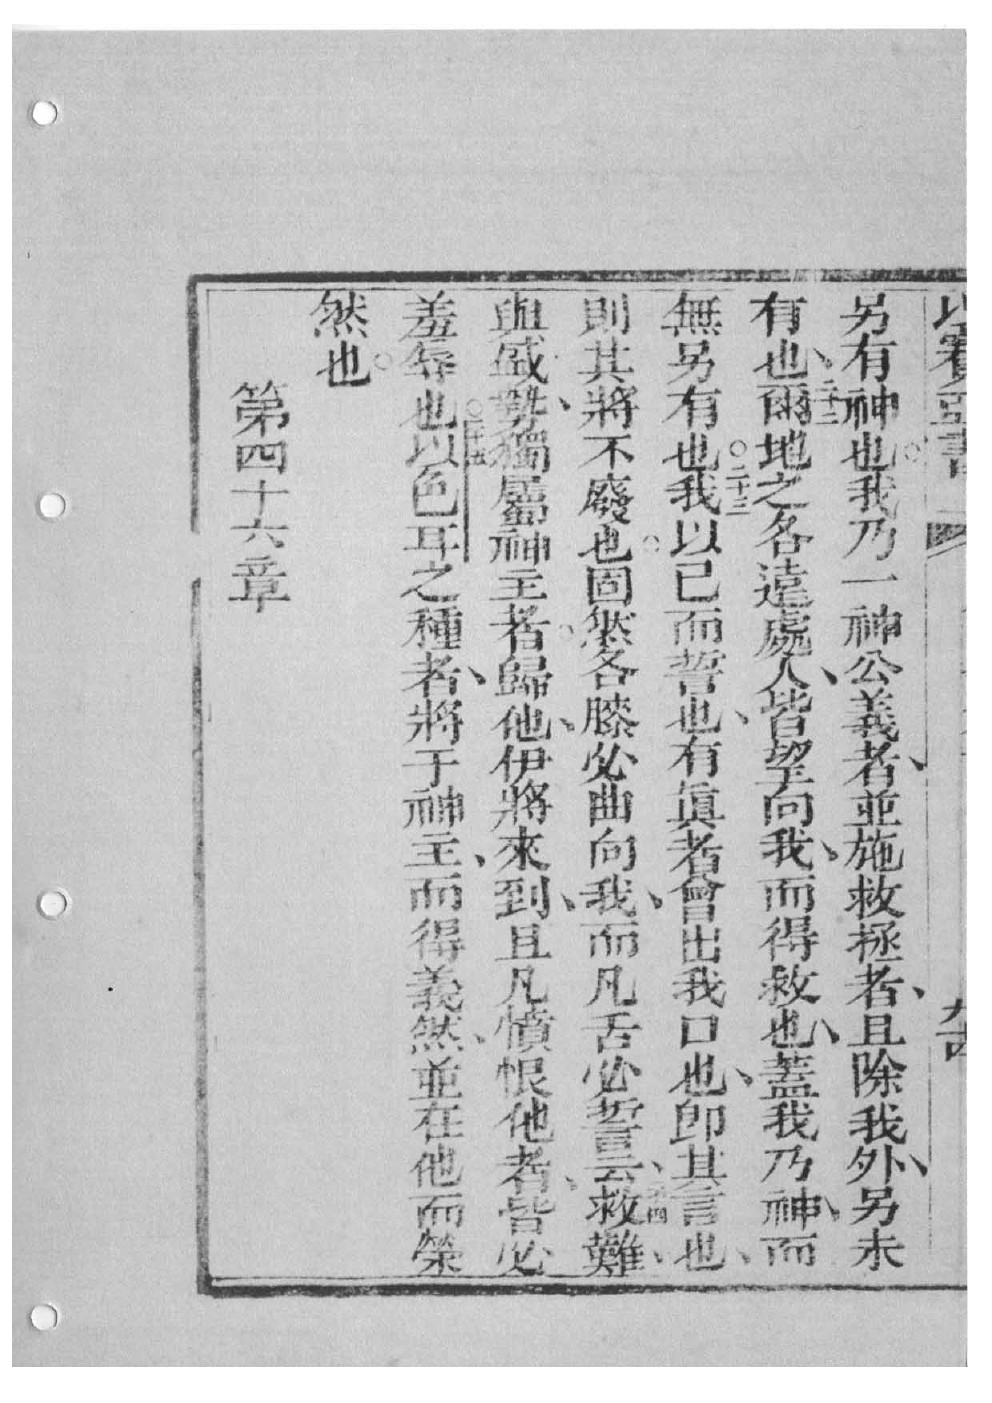 以賽亞書
另有神也。我乃一神公義者、並施救拯者、且除我外、另未
有也、二十二爾地之各遠處人、皆望向我、而得救也、蓋我乃神、而
無另有也。二十三我以已而誓也、有眞者曾出我口也、卽其言也、
則其將不廢也。固然各膝必曲向我、而凡舌必誓云、二十四救難、
與盛勢、獨屬神主者。歸他、伊將來到、且凡憤恨他者、皆必
羞辱也。二十五以色耳之種者、將于神主、而得義然、並在他而榮
然也。
第四十六章